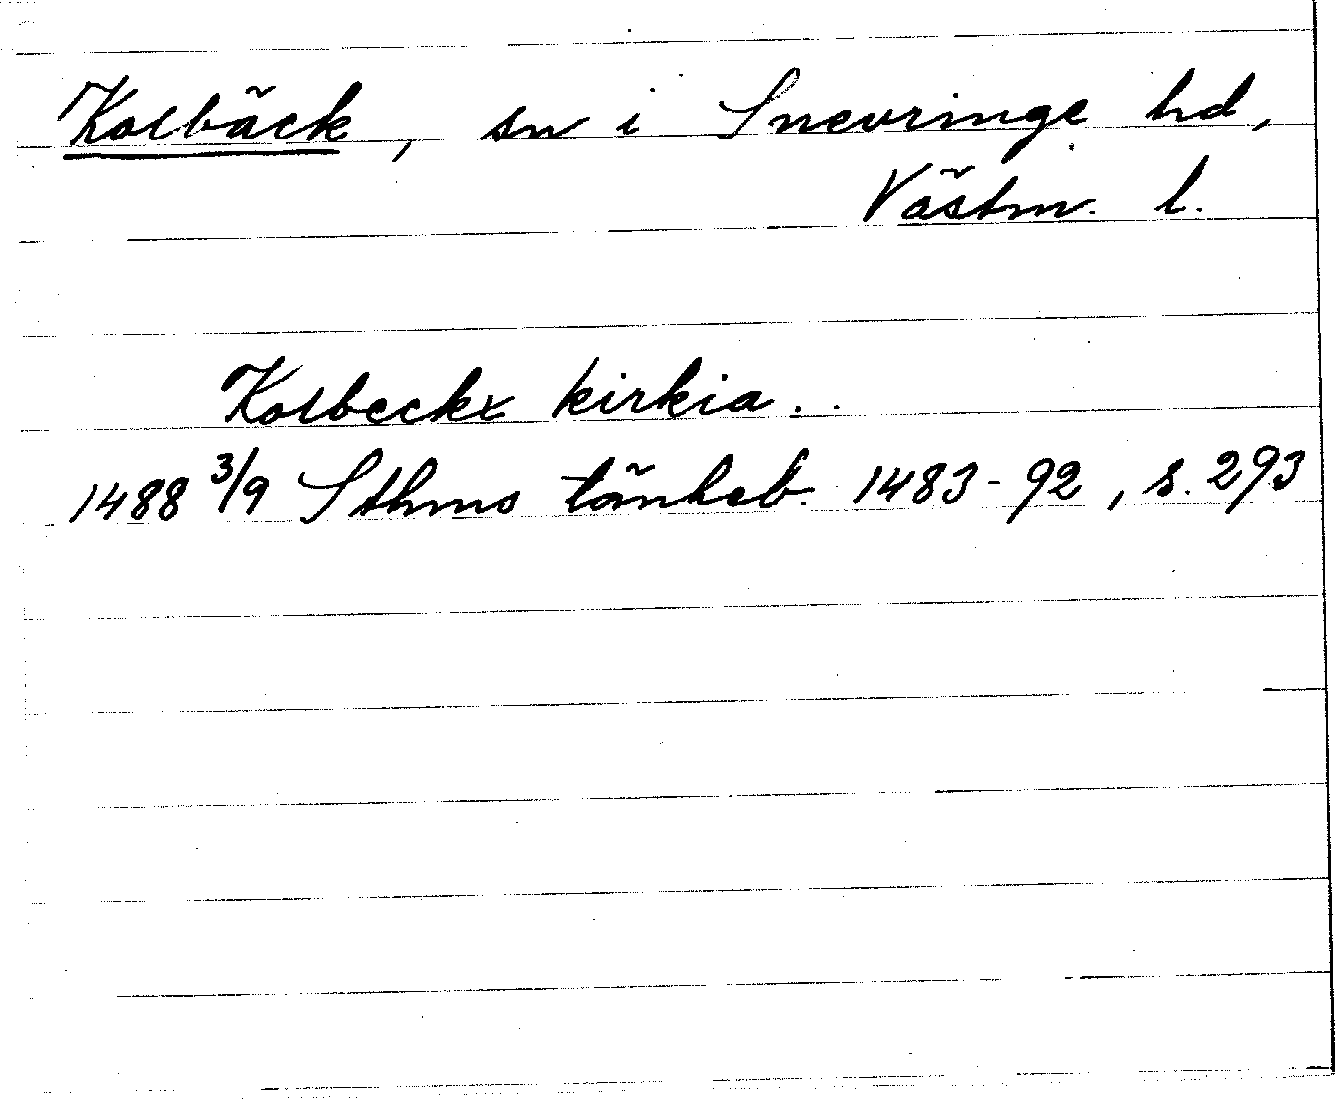 Kolbäck, sn i Snevringe hd,
Västm. l.
Kolbeckx kirkia.
1488 3/9 Sthms tänkeb. 1483-92, s. 293